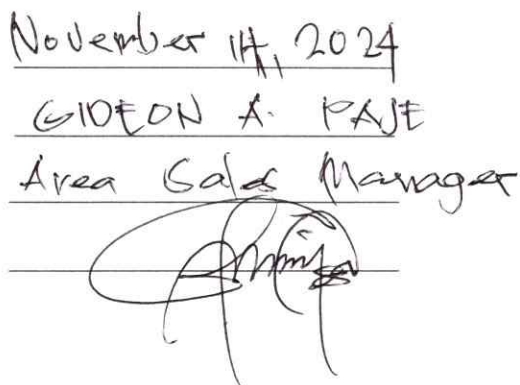 November 14, 2024
GIDEON A. PAJE
Area Sales Manager